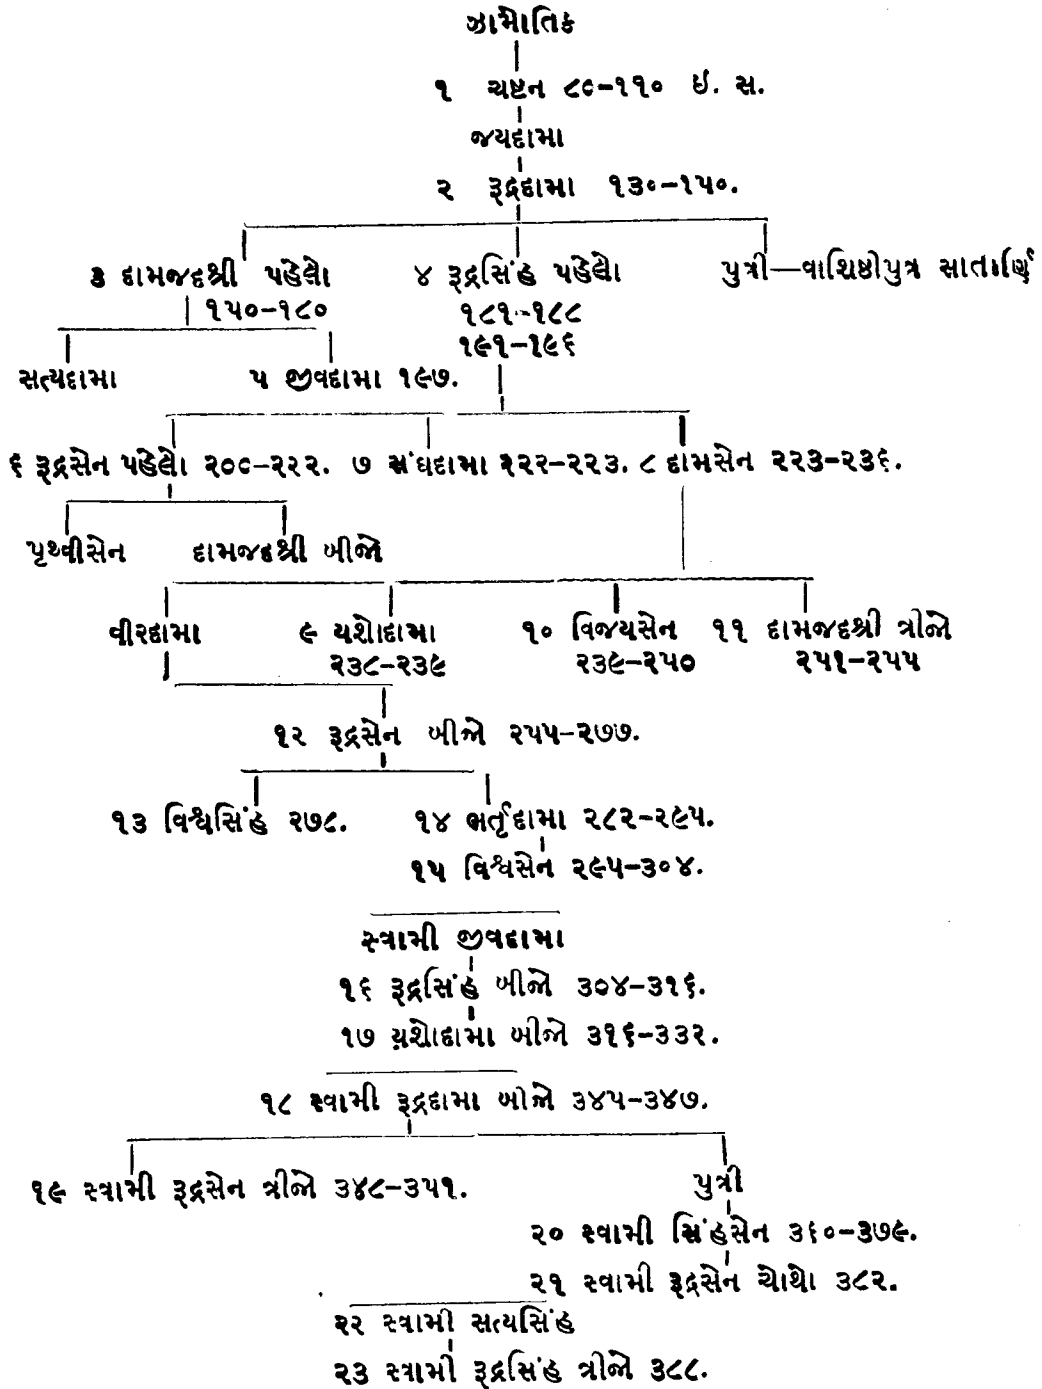 ઝામોતિક
૧ ચષ્ટન ૮૯-૧૧૦ ઇ. સ.
જયદામા
૨ રૂદ્રદામા ૧૩૦-૧૫૦.
૩ દામજદશ્રી પહેલો ૪ રૂદ્રસિંહ પહેલો પુત્રી—વાશિષ્ઠીપુત્ર સાતકર્ણિ
૧૫૦-૧૮૦ ૧૮૧-૧૮૮
૧૯૧-૧૯૬
સત્યદામા ૫ જીવદામા ૧૯૭.
૬ રૂદ્રસેન પહેલો ૨૦૯-૨૨૨. ૭ સંઘદામા ૨૨૨-૨૨૩. ૮ દામસેન ૨૨૩-૨૩૬.
પૃથ્વીસેન દામજદશ્રી બીજો
વીરદામા ૯ યશોદામા ૧૦ વિજયસેન ૧૧ દામજદશ્રી ત્રીજો
૨૩૮-૨૩૯ ૨૩૯-૨૫૦ ૨૫૧-૨૫૫
૧૨ રૂદ્રસેન બીજો ૨૫૫-૨૭૭.
૧૩ વિશ્વસિંહ ૨૭૮. ૧૪ ભર્તૃદામા ૨૮૨-૨૯૫.
૧૫ વિશ્વસેન ૨૯૫-૩૦૪.
સ્વામી જીવદામા
૧૬ રૂદ્રસિંહ બીજો ૩૦૪-૩૧૬.
૧૭ યશોદામા બીજો ૩૧૬-૩૩૨.
૧૮ સ્વામી રૂદ્રદામા બીજો ૩૪૫-૩૪૭.
૧૯ સ્વામી રૂદ્રસેન ત્રીજો ૩૪૮-૩૫૧. પુત્રી
૨૦ સ્વામી સિંહસેન ૩૬૦-૩૭૯.
૨૧ સ્વામી રૂદ્રસેન ચોથો ૩૮૨.
૨૨ સ્વામી સત્યસિંહ
૨૩ સ્વામી રૂદ્રસિંહ ત્રીજો ૩૮૮.